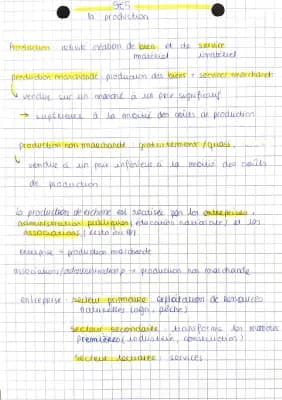 SES
la production
Production activité création de biens et de service
matériel immatériel
production marchande : production des biens + services marchands
vendu sur un marché à un prix significatif
→ supérieure à la moitié des coûts de production
production non marchande : gratuitement / quasi
vendue à un prix inférieur à la moitié des coûts
de production
la production de richesse est réalisée par les entreprises,
administrations publiques (éducation nationale) et les
associations (resto du ♡)
entreprise = production marchande
associations/administration p → production non marchande
entreprise : secteur primaire : exploitation de ressources
naturelles (agri, pêche)
secteur secondaire : transforme les matières
premières (industrie, construction)
secteur tertiaire : services